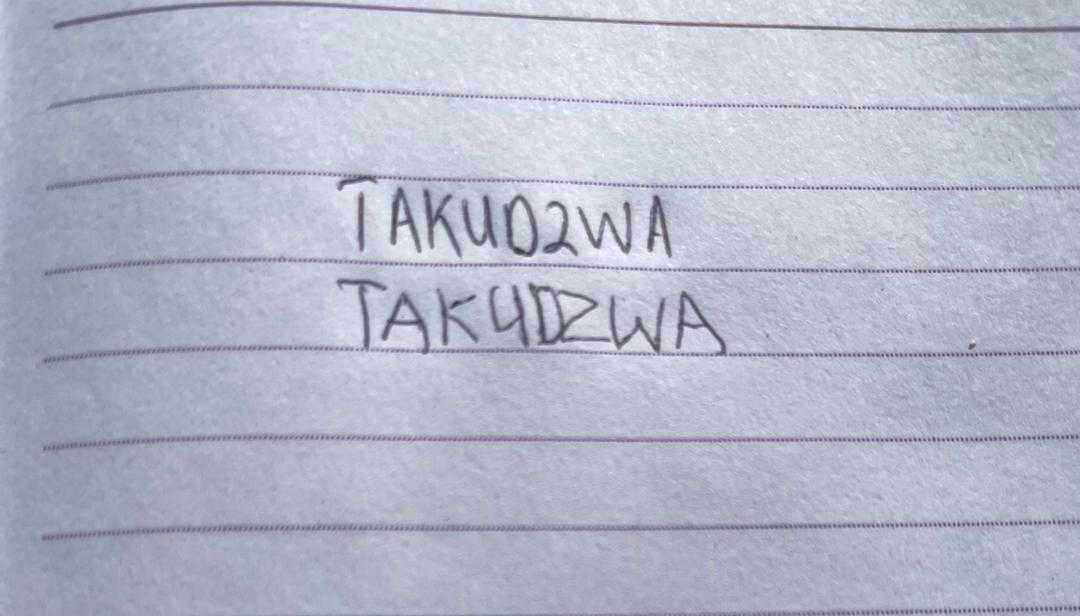 TAKUDZWA
TAKUDZWA